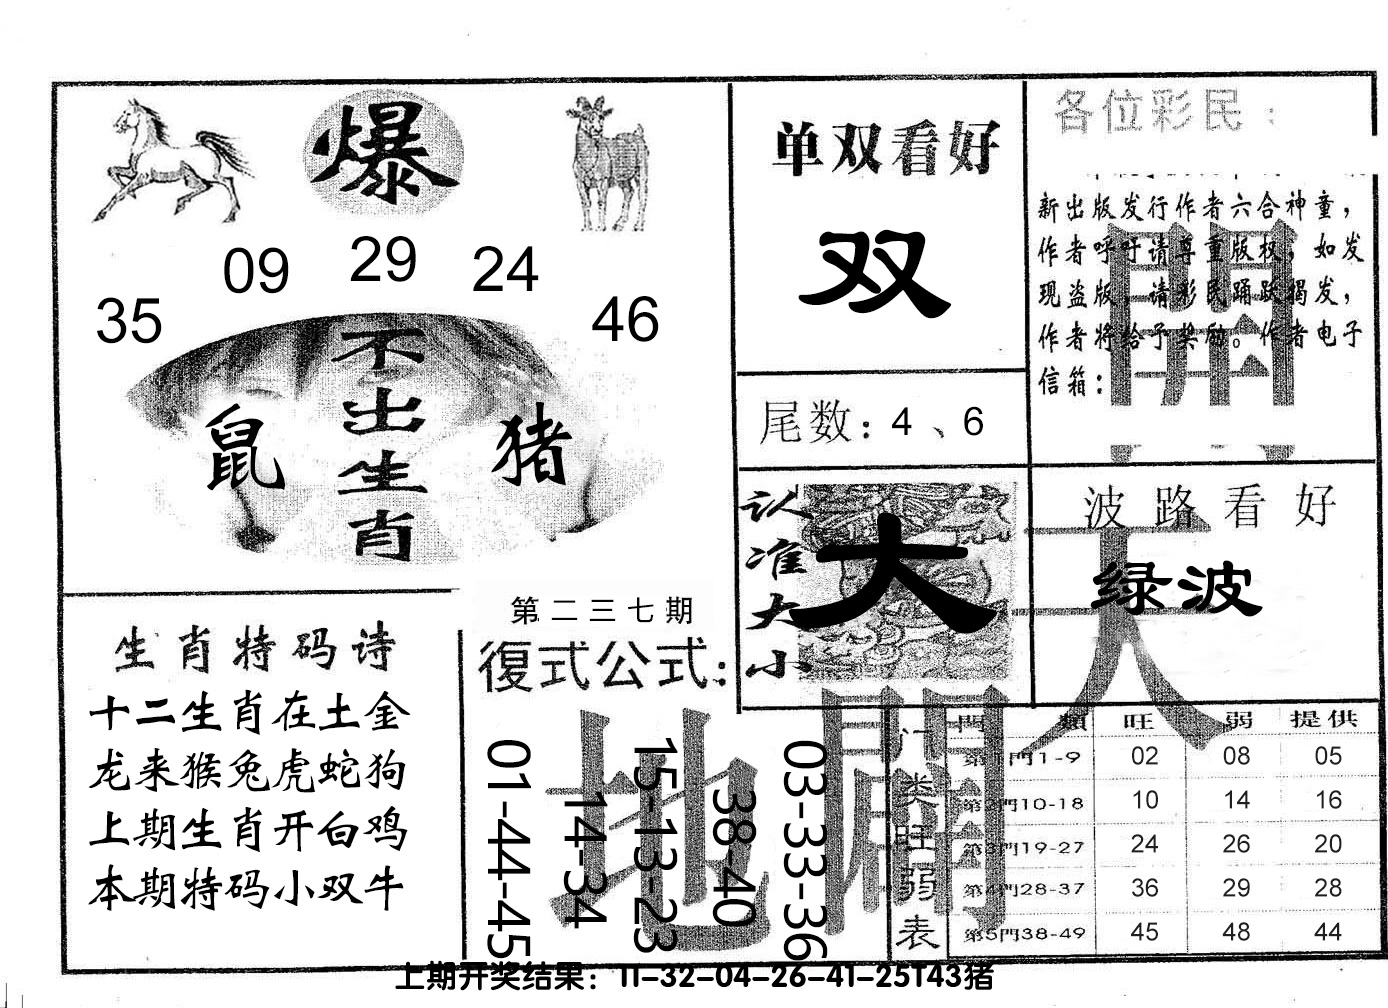 爆
35
09
29
24
46
不出生肖
鼠
猪
单双看好
双
尾数：4、6
各位彩民：
新出版发行作者六合神童，
作者呼吁请尊重版权，如发
现盗版，请彩民踊跃揭发，
作者将给予奖励。作者电子
信箱：
開
认准大小
大
波路看好
绿波
天
生肖特码诗
十二生肖在土金
龙来猴兔虎蛇狗
上期生肖开白鸡
本期特码小双牛
第二三七期
復式公式：
01-44-45
14-34
15-13-23
38-40
03-33-36
地
闢
门类旺弱表
門類 旺 弱 提供
第1門1-9 02 08 05
第2門10-18 10 14 16
第3門19-27 24 26 20
第4門28-37 36 29 28
第5門38-49 45 48 44
上期开奖结果：11-32-04-26-41-25T43猪